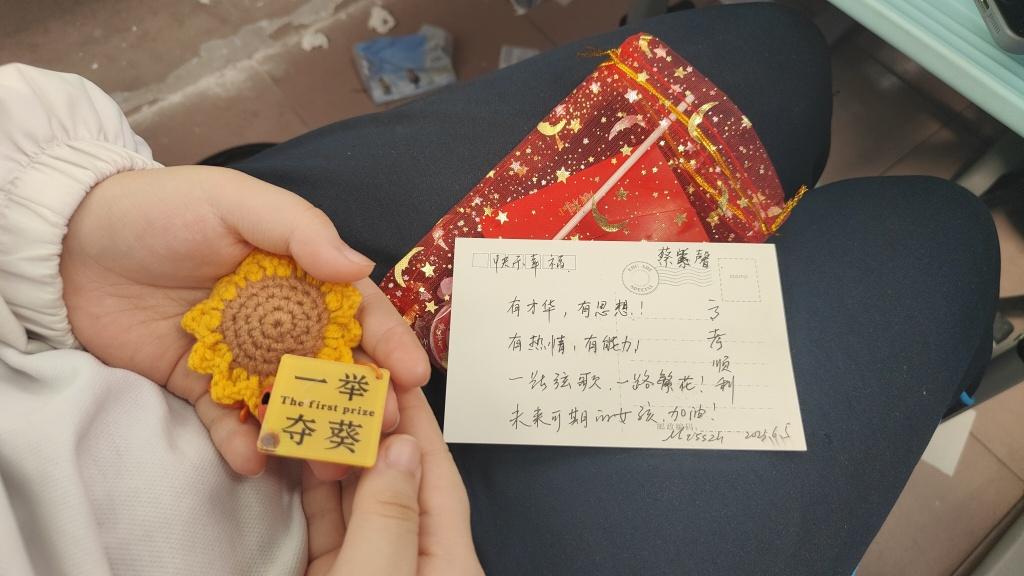 一举
The first prize
夺葵
快乐幸福
蔡紫馨
SPECIAL
STAMP
有才华，有思想！
有热情，有能力！
一路弦歌，一路繁花！
未来可期的女孩，加油！
高考顺利
邮政编码